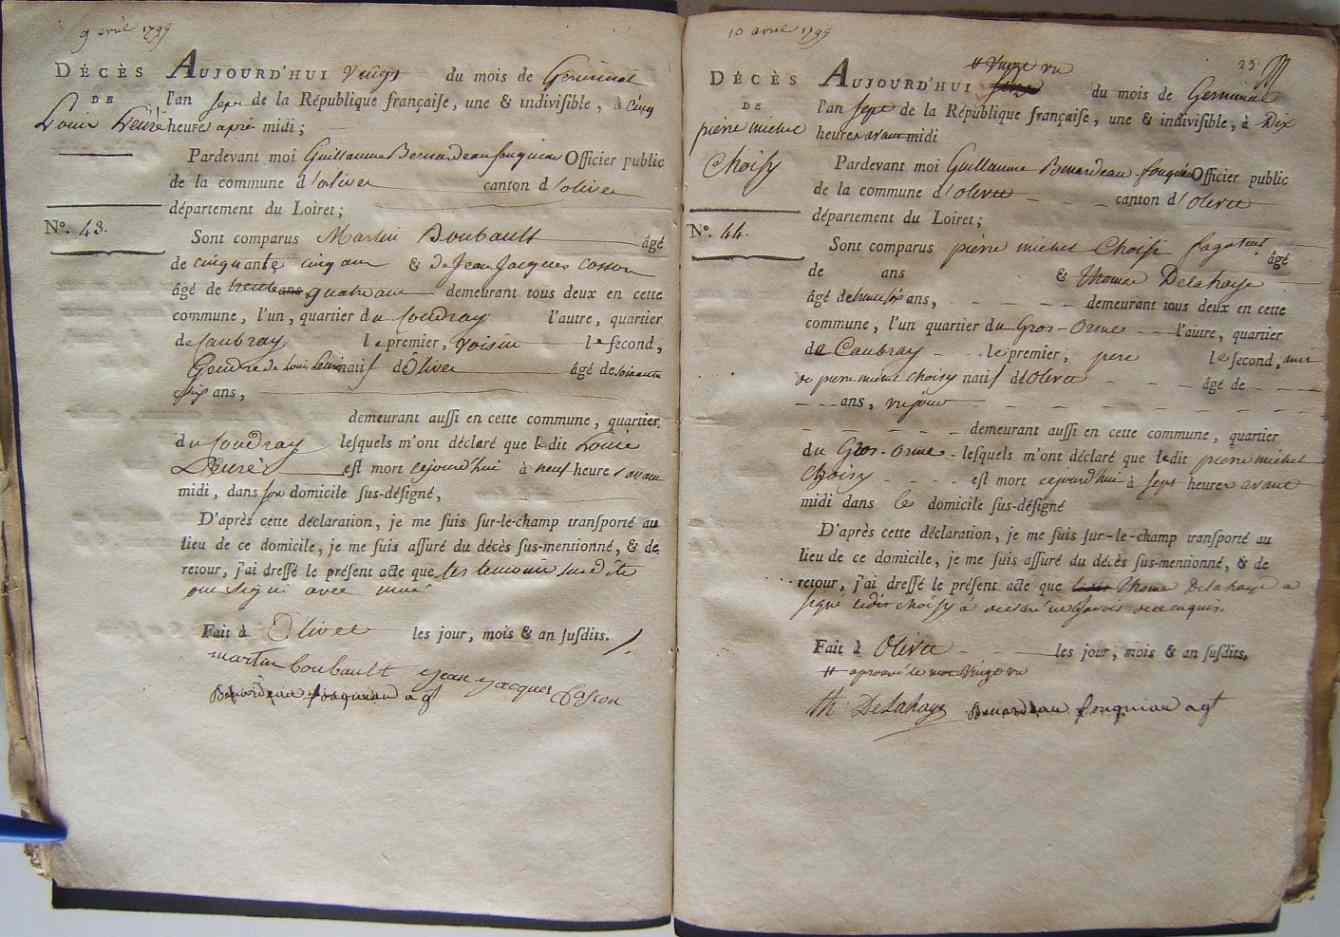 9 avril 1799
DÉCÈS
DE
Louis Leuré
Nº. 43.
AUJOURD'HUI Vingt du mois de Germinal
l'an sept de la République françaiſe, une & indiviſible, à cinq
heures apres midi;
Pardevant moi Guillaume Benardeau fouqueau Officier public
de la commune d'olivet canton d'olivet
département du Loiret;
SONT COMPARUS Martin Boubault âgé
de cinquante cinq ans & de Jean Jacques Cosson
âgé de trente ans quatre ans demeurant tous deux en cette
commune, l'un, quartier du Coudray l'autre, quartier
de Caubray le premier, voisin le ſecond,
Gendre de Louis Leuré natif d'Olivet âgé de soixante
six ans,
demeurant auſſi en cette commune, quartier
du Coudray leſquels m'ont déclaré que ledit Louis
Leuré eſt mort cejourd'hui à neuf heures avant
midi, dans son domicile ſus-déſigné,
D'après cette déclaration, je me ſuis ſur-le-champ tranſporté au
lieu de ce domicile, je me ſuis aſſuré du décès ſus-mentionné, & de
retour, j'ai dreſſé le préſent acte que les temoins susdits
ont signé avec moi
Fait à Olivet les jour, mois & an ſuſdits.
martin boubault jean jacques Cosson
Benardeau fouqueau agt
10 avril 1799
23
DÉCÈS
DE
pierre michel
Choisy
Nº. 44.
# Vingt un
AUJOURD'HUI du mois de Germinal
l'an sept de la République françaiſe, une & indiviſible, à Dix
heures avant midi
Pardevant moi Guillaume Benardeau fouqueau Officier public
de la commune d'olivet canton d'olivet
département du Loiret;
SONT COMPARUS pierre michel Choisi âgé
de ans & thomas Delahaye
âgé de trente six ans, demeurant tous deux en cette
commune, l'un quartier du Gros-orme l'autre, quartier
de Caubray le premier, pere le ſecond, ami
de pierre michel choisy natif d'olivet âgé de
ans,
demeurant auſſi en cette commune, quartier
du Gros-orme leſquels m'ont déclaré que ledit pierre michel
Choisy eſt mort cejourd'hui à sept heures avant
midi dans le domicile ſus-déſigné
D'après cette déclaration, je me ſuis ſur-le-champ tranſporté au
lieu de ce domicile, je me ſuis aſſuré du décès ſus-mentionné, & de
retour, j'ai dreſſé le préſent acte que thomas Delahaye a
signé ledit choisy a declaré ne savoir de ce enquis.
Fait à Olivet les jour, mois & an ſuſdits.
# aprouvé le mot Vingt un
th Delahaye Benardeau fouqueau agt